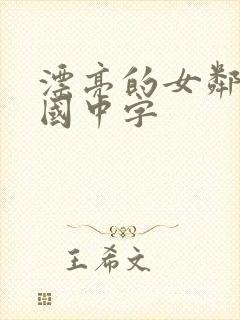 漂亮的女鄰
國中字
王希文